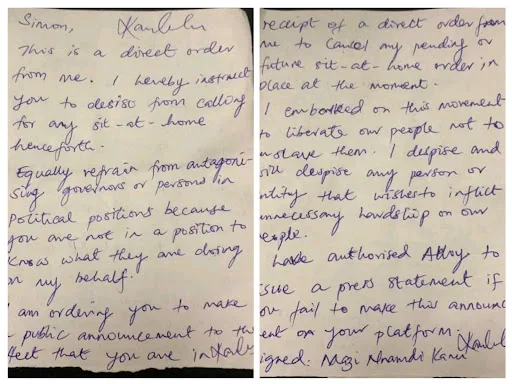 Simon, Kanunu
This is a direct order
from me. I hereby instruct
you to desist from calling
for any sit-at-home
henceforth.
Equally refrain from antagoni-
sing governors or persons in
political positions because
you are not in a position to
know what they are doing
on my behalf.
I am ordering you to make
public announcement to the
effect that you are in
receipt of a direct order from
me to cancel any pending or
future sit-at-home order in
place at the moment.
I embarked on this movement
to liberate our people not to
enslave them. I despise and
will despise any person or
entity that wishes to inflict
unnecessary hardship on our
people.
I have authorised Alloy to
issue a press statement if
you fail to make this announc
ent on your platform
signed. Mazi Nnamdi Kanu